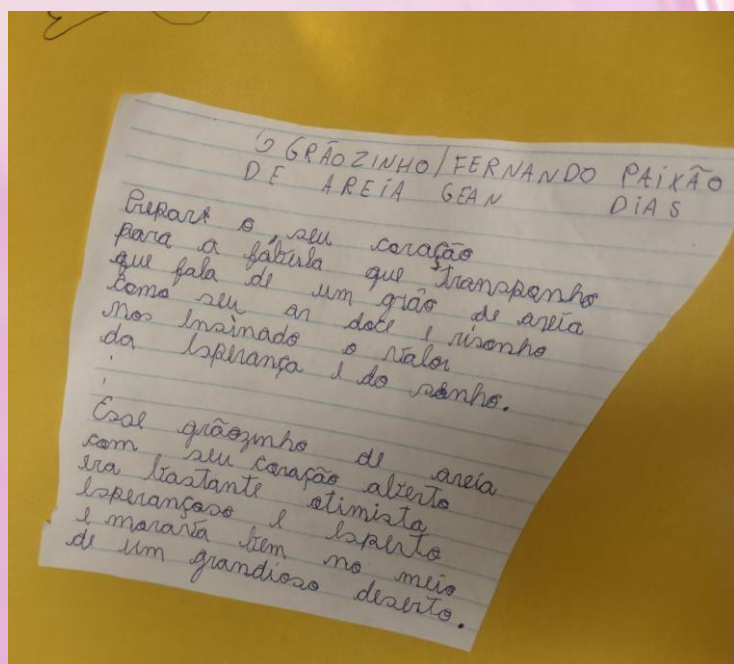 O GRÃOZINHO / FERNANDO PAIXÃO
DE AREIA GEAN DIAS
Prepare o seu coração
para a fábula que transponho
que fala de um grão de areia
como seu ar doce e risonho
nos ensinado o valor
da esperança e do sonho.
Esse grãozinho de areia
com seu coração aberto
era bastante otimista
esperançoso e esperto
e morava bem no meio
de um grandioso deserto.